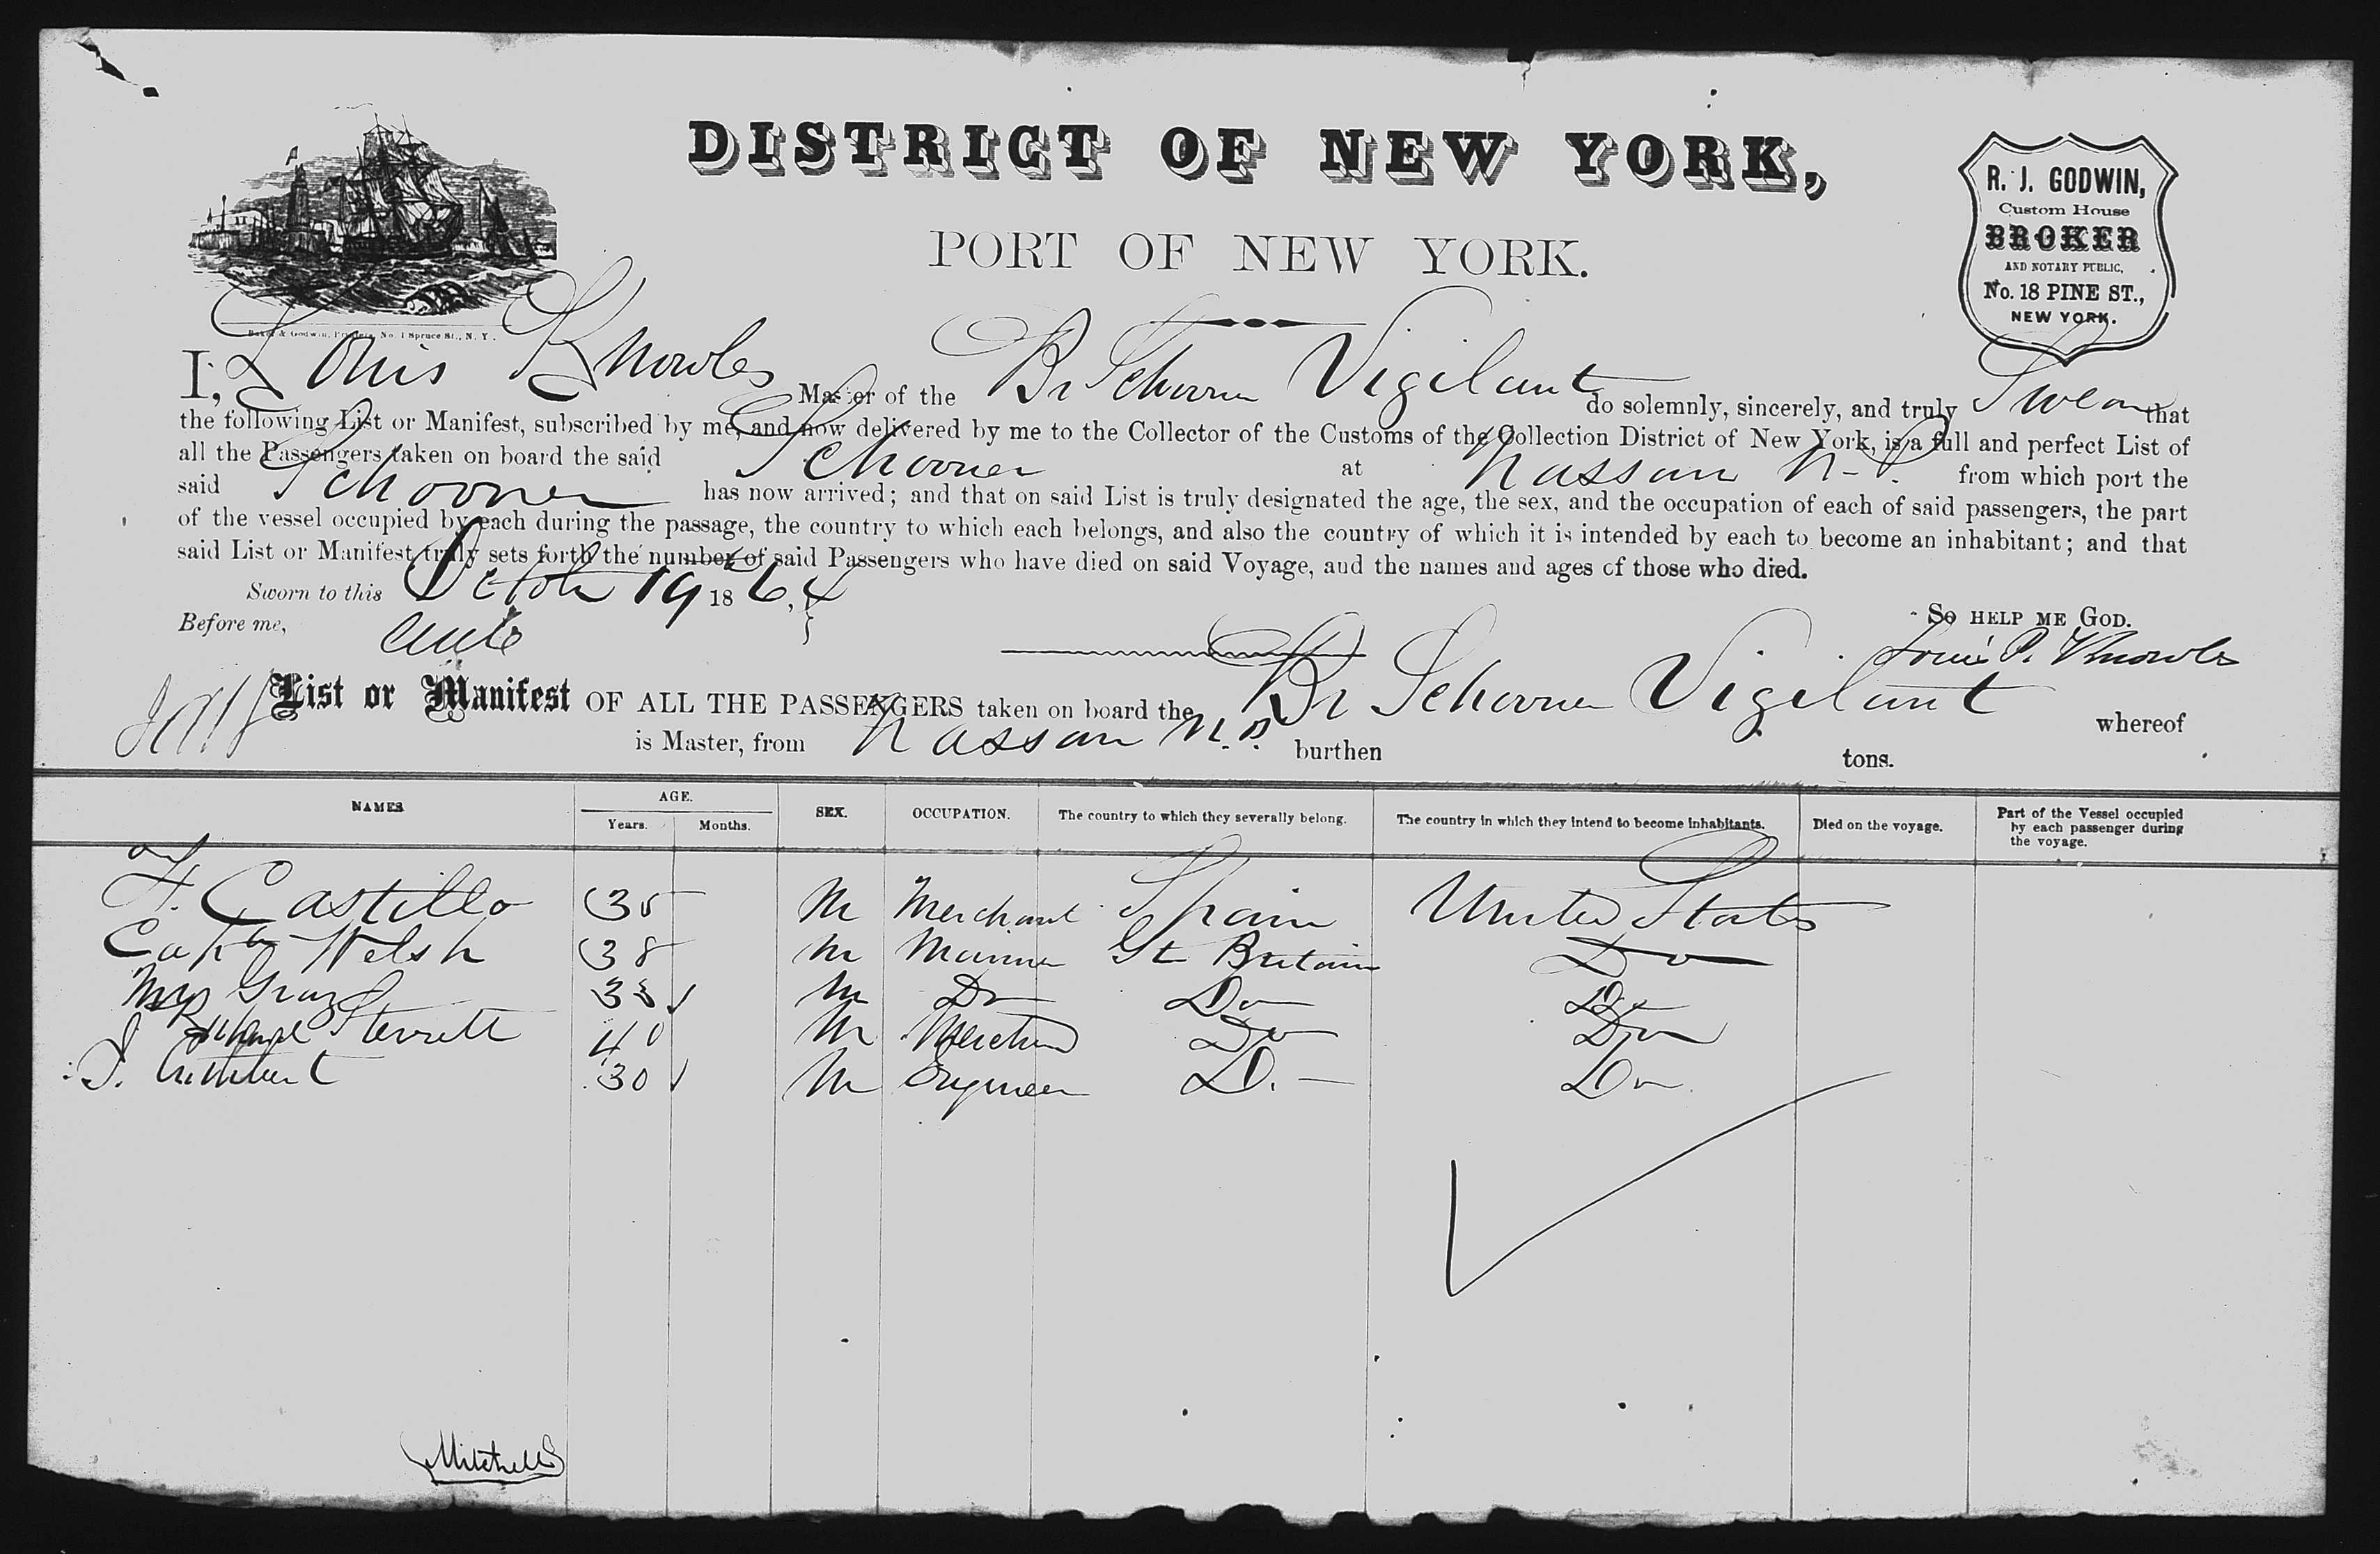 DISTRICT OF NEW YORK,
PORT OF NEW YORK.
R. J. GODWIN,
Custom House
BROKER
AND NOTARY PUBLIC,
No. 18 PINE ST.,
NEW YORK.
Baker & Godwin, Printers, No. 1 Spruce St., N. Y.
I, Louis Knowles Master of the Br Schooner Vigilant do solemnly, sincerely, and truly Swear that
the following List or Manifest, subscribed by me, and now delivered by me to the Collector of the Customs of the Collection District of New York, is a full and perfect List of
all the Passengers taken on board the said Schooner at Nassau N.P. from which port the
said Schooner has now arrived; and that on said List is truly designated the age, the sex, and the occupation of each of said passengers, the part
of the vessel occupied by each during the passage, the country to which each belongs, and also the country of which it is intended by each to become an inhabitant; and that
said List or Manifest truly sets forth the number of said Passengers who have died on said Voyage, and the names and ages of those who died.
Sworn to this October 19 1864
So HELP ME GOD.
Before me,
Louis P. Knowles
List or Manifest OF ALL THE PASSENGERS taken on board the Br Schooner Vigilant whereof
is Master, from Nassau N.P. burthen tons.
NAMES AGE. Years. Months. SEX. OCCUPATION. The country to which they severally belong. The country in which they intend to become inhabitants. Died on the voyage. Part of the Vessel occupied by each passenger during the voyage.
F. Castillo 35 M Merchant Spain United States
Captn Welsh 38 M Mariner Gt Britain Do
Gray M Do Do Do
Sterrett 40 M Merchant Do Do
30 M Engineer D. Do
Mitchell